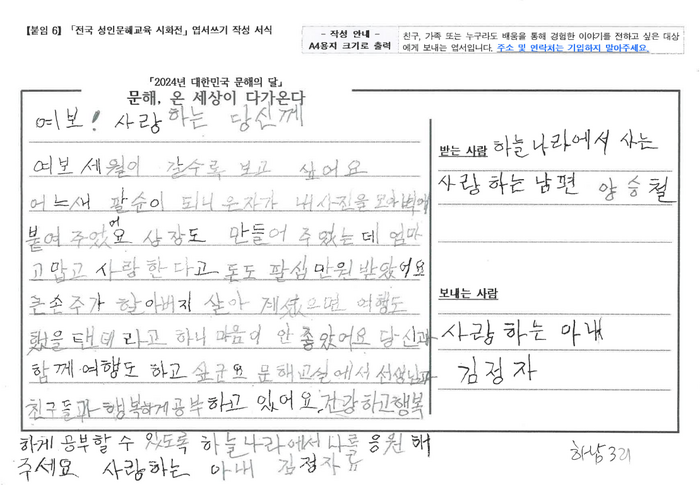 【붙임 6】「전국 성인문해교육 시화전」 엽서쓰기 작성 서식
- 작성 안내 -
A4용지 크기로 출력
친구, 가족 또는 누구라도 배움을 통해 경험한 이야기를 전하고 싶은 대상
에게 보내는 엽서입니다. 주소 및 연락처는 기입하지 말아주세요.
「2024년 대한민국 문해의 달」
문해, 온 세상이 다가온다
여보! 사랑하는 당신께
여보 세월이 갈수록 보고 싶어요
어느새 팔순이 되니 은자가 내 사진을 모아 벽에
붙여 주었어요 상장도 만들어 주었는데 엄마
고맙고 사랑한다고 돈도 팔십만원 받았어요
큰손주가 할아버지 살아 계셨으면 여행도
했을텐데 라고 하니 마음이 안 좋았어요 당신과
함께 여행도 하고 싶군요 문해교실에서 선생님과
친구들과 행복하게 공부하고 있어요. 건강하고 행복
하게 공부할 수 있도록 하늘나라에서 나를 응원해
주세요 사랑하는 아내 김정자
받는 사람 하늘나라에서 사는
사랑하는 남편 양승철
보내는 사람
사랑하는 아내
김정자
하남3리